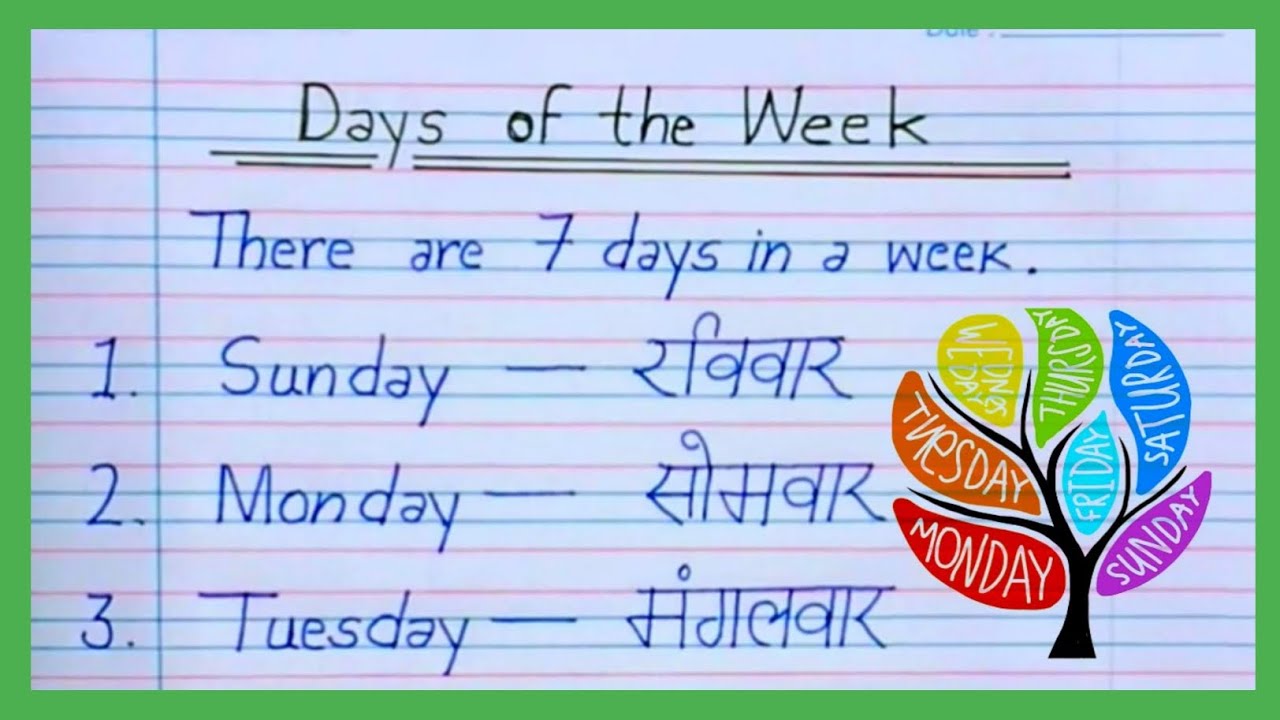 Date :
Days of the Week
There are 7 days in a week.
1. Sunday — रविवार
2. Monday — सोमवार
3. Tuesday — मंगलवार
WEDNesDAY
THURSDAY
SATURDAY
TUeSDAY
FRIDAY
MONDAY
SUNDAY